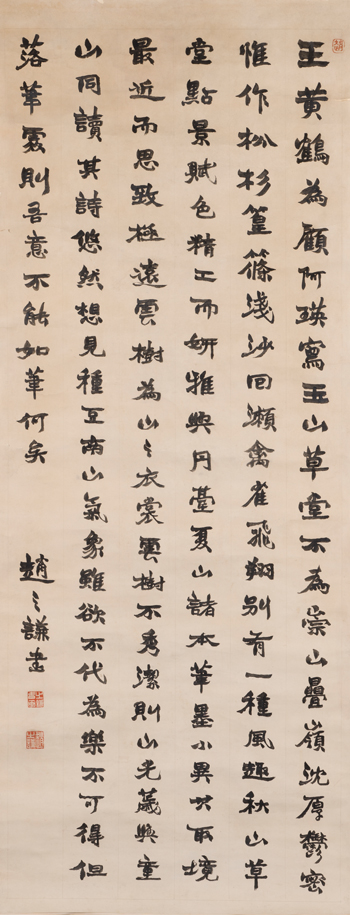 王黃鶴為顧阿瑛寫玉山草堂不為崇山疊嶺沈厚鬱密
惟作松杉篁篠淺沙回瀨禽雀飛翔別有一種風趣秋山草
堂點景賦色精工而妍雅與丹臺夏山諸本筆墨小異其取境
最近而思致極遠雲樹為山之衣裳雲樹不秀潔則山光薉與童
山同讀其詩悠然想見種豆南山氣象雖欲不代為樂不可得但
落筆處則吾意不能如筆何矣
趙之謙書